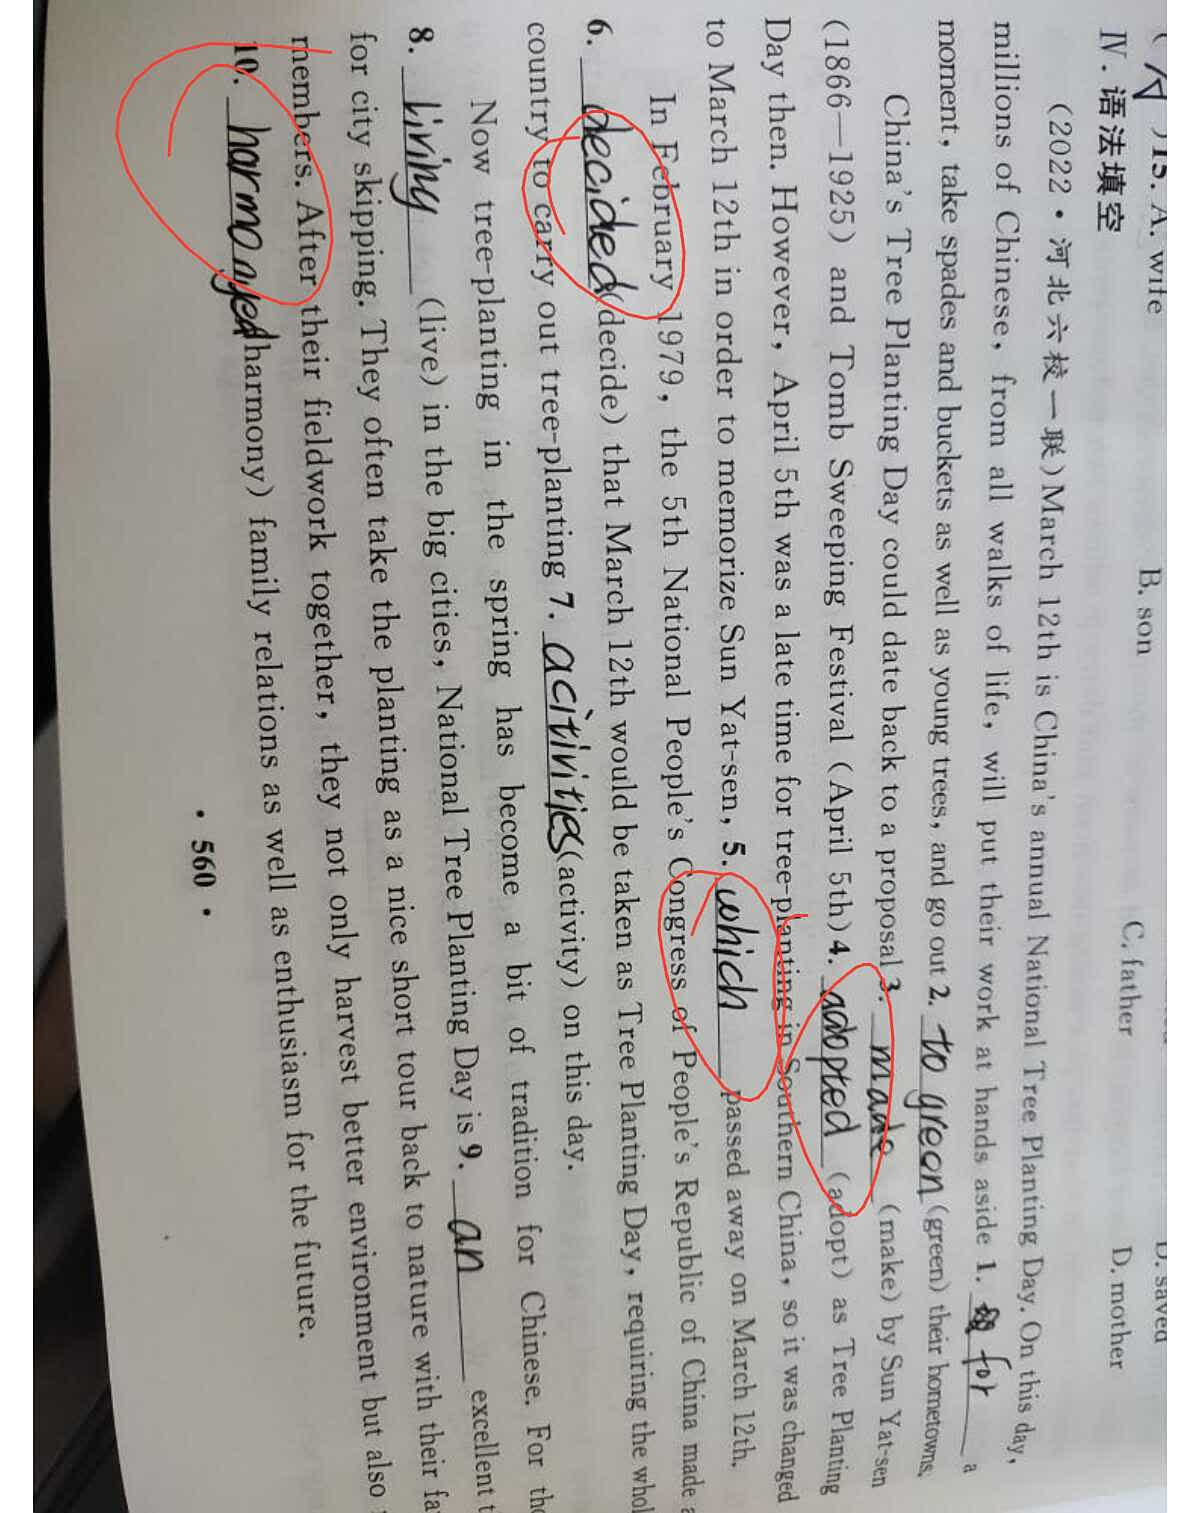 15. A. wife B. son C. father D. mother
D. saved
Ⅳ. 语法填空
(2022·河北六校一联)March 12th is China's annual National Tree Planting Day. On this day,
millions of Chinese, from all walks of life, will put their work at hands aside 1. for a
moment, take spades and buckets as well as young trees, and go out 2. to green (green) their hometowns.
China's Tree Planting Day could date back to a proposal 3. made (make) by Sun Yat-sen
(1866—1925) and Tomb Sweeping Festival (April 5th) 4. adopted (adopt) as Tree Planting
Day then. However, April 5th was a late time for tree-planting in Southern China, so it was changed
to March 12th in order to memorize Sun Yat-sen, 5. which passed away on March 12th.
In February 1979, the 5th National People's Congress of People's Republic of China made a
6. decided (decide) that March 12th would be taken as Tree Planting Day, requiring the whol
country to carry out tree-planting 7. acitivities (activity) on this day.
Now tree-planting in the spring has become a bit of tradition for Chinese. For tho
8. living (live) in the big cities, National Tree Planting Day is 9. an excellent t
for city skipping. They often take the planting as a nice short tour back to nature with their fa
members. After their fieldwork together, they not only harvest better environment but also
10. harmonyed (harmony) family relations as well as enthusiasm for the future.
· 560 ·